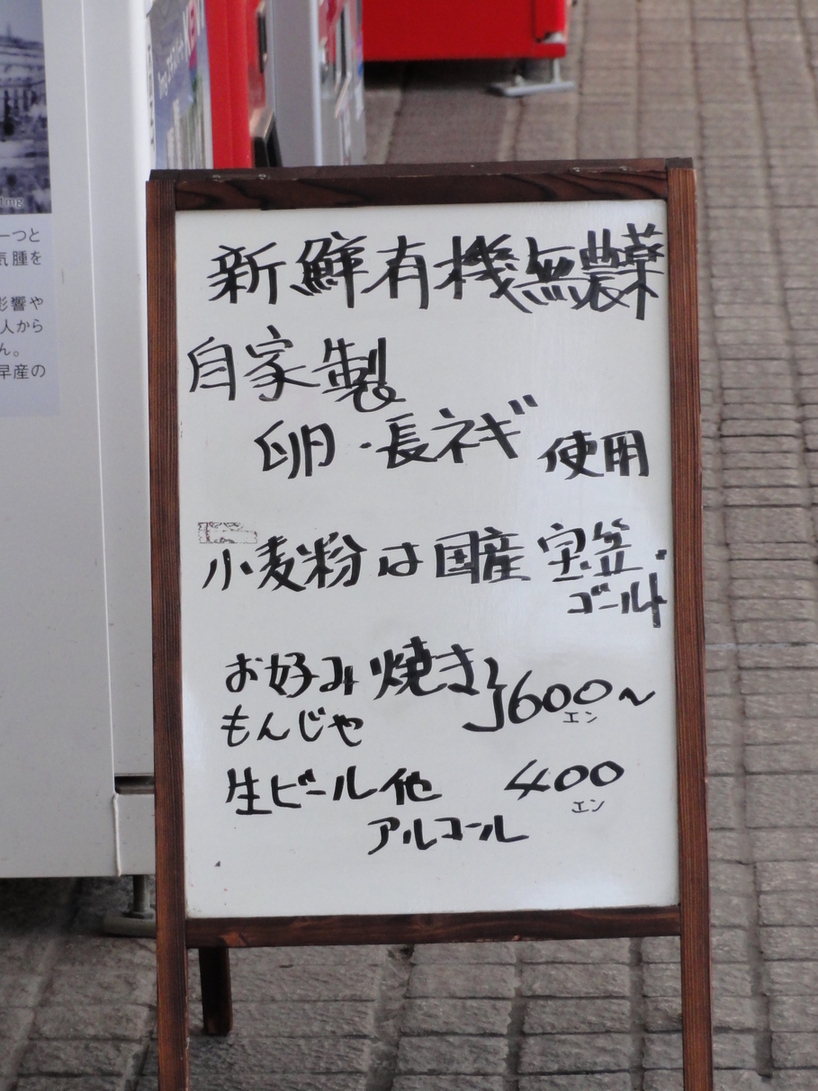 新鮮有機無農薬
自家製
卵・長ネギ 使用
小麦粉は国産 宝笠・
ゴールド
お好み焼き
もんじゃ
600〜
エン
生ビール他 400
エン
アルコール
一つと
気腫を
影響や
人から
ん。
早産の